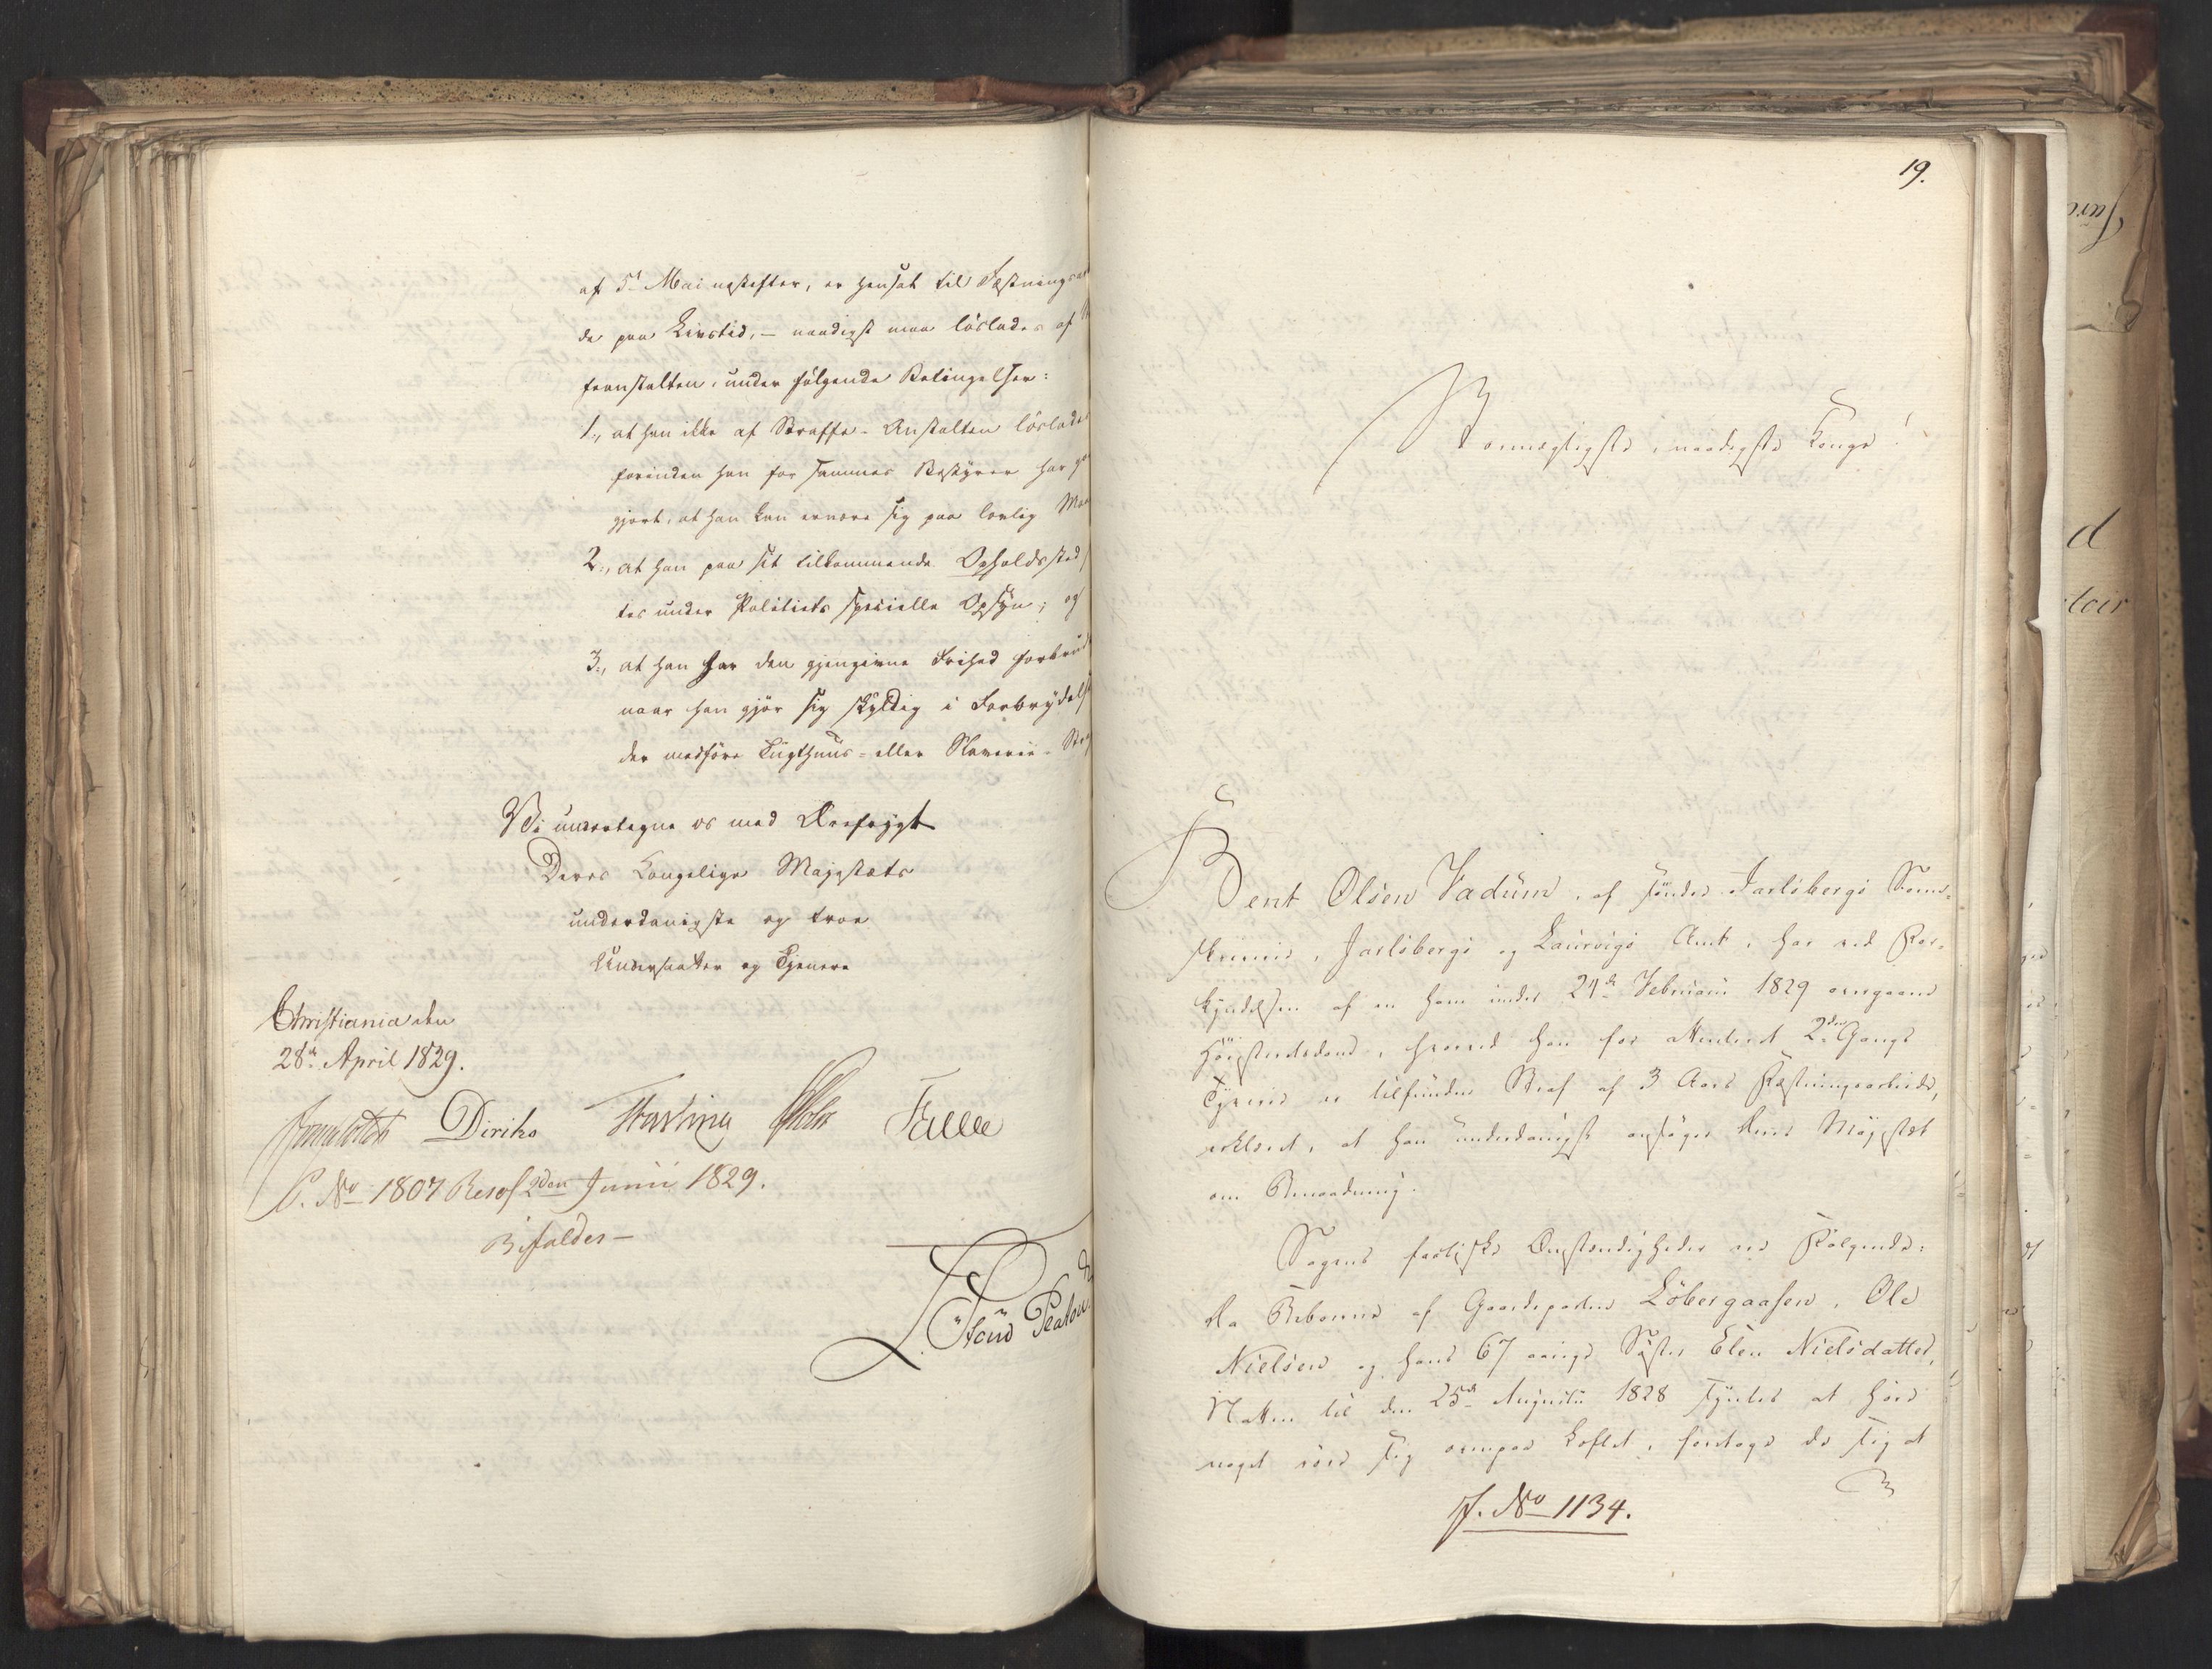 af 5t Mai nestefter, er hensat til Fæstningsar
de paa Livstid, – naadigst maa løslades af
feanstalten, under følgende Betingelser:
1., at han ikke af Straffe-Anstalten løslade
forinden han for sammes Bestyrer har go
gjort, at han kan ernære sig paa lovlig Maa
2., at han paa sit tilkommende Opholdssted
tes under Politiets specielle Opsyn; og
3., at han har den gjengivne Frihed forbrud
naar han gjør sig skyldig i Forbrydels
der medføre Tugthuus- eller Slaverie-
Vi undertegne os med Ærefrygt
Deres Kongelige Majestæts
underdanigste og troe
Undersaatter og Tjenere
Christiania den
28de April 1829.
Diriks Falsen
P. No 1807 Resol 2den Junii 1829.
Bifaldes –
19.
Stormægtigste, naadigste Konge!
Bent Olsen Vadum, af søndre Jarlsbergs Soren-
skriverie, Jarlsbergs og Laurvigs Amt, har ved For-
kyndelsen af en ham under 24de Februarii 1829 overgaaende
Høiesteretsdom, hvorved han for attenteret 2den Gangs
Tyverie er tilfunden Straf af 3 Aars Fæstningsarbeide,
erklæret, at han underdanigst ansøger Deres Majestæt
om Benaadning.
Sagens factiske Omstændigheder ere Følgende:
Da Beboerne af Gaardeparten Løbergaasen, Ole
Nielsen og hans 67 aarige Søster Elen Nielsdatter,
Natten til den 25de Augustii 1828 syntes at høre
noget røre sig ovenpaa Loftet, foretoge de sig at
J. No 1134.